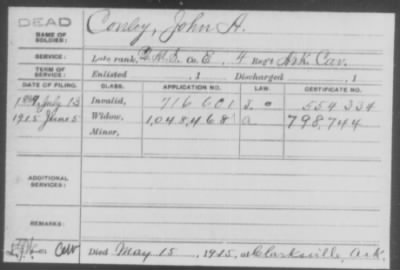 DEAD
NAME OF SOLDIER: Conley, John A.
SERVICE: Late rank, Q.M.S. Co. E, 4 Reg't Ark. Cav.
TERM OF SERVICE: Enlisted , 1 Discharged , 1
DATE OF FILING. CLASS. APPLICATION NO. LAW. CERTIFICATE NO.
1889, July 13 Invalid, 716 601 554 334
1915 June 5 Widow, 1,048,468 a 798,744
Minor,
ADDITIONAL SERVICES:
REMARKS:
Died May 15, 1915, at Clarksville, Ark.